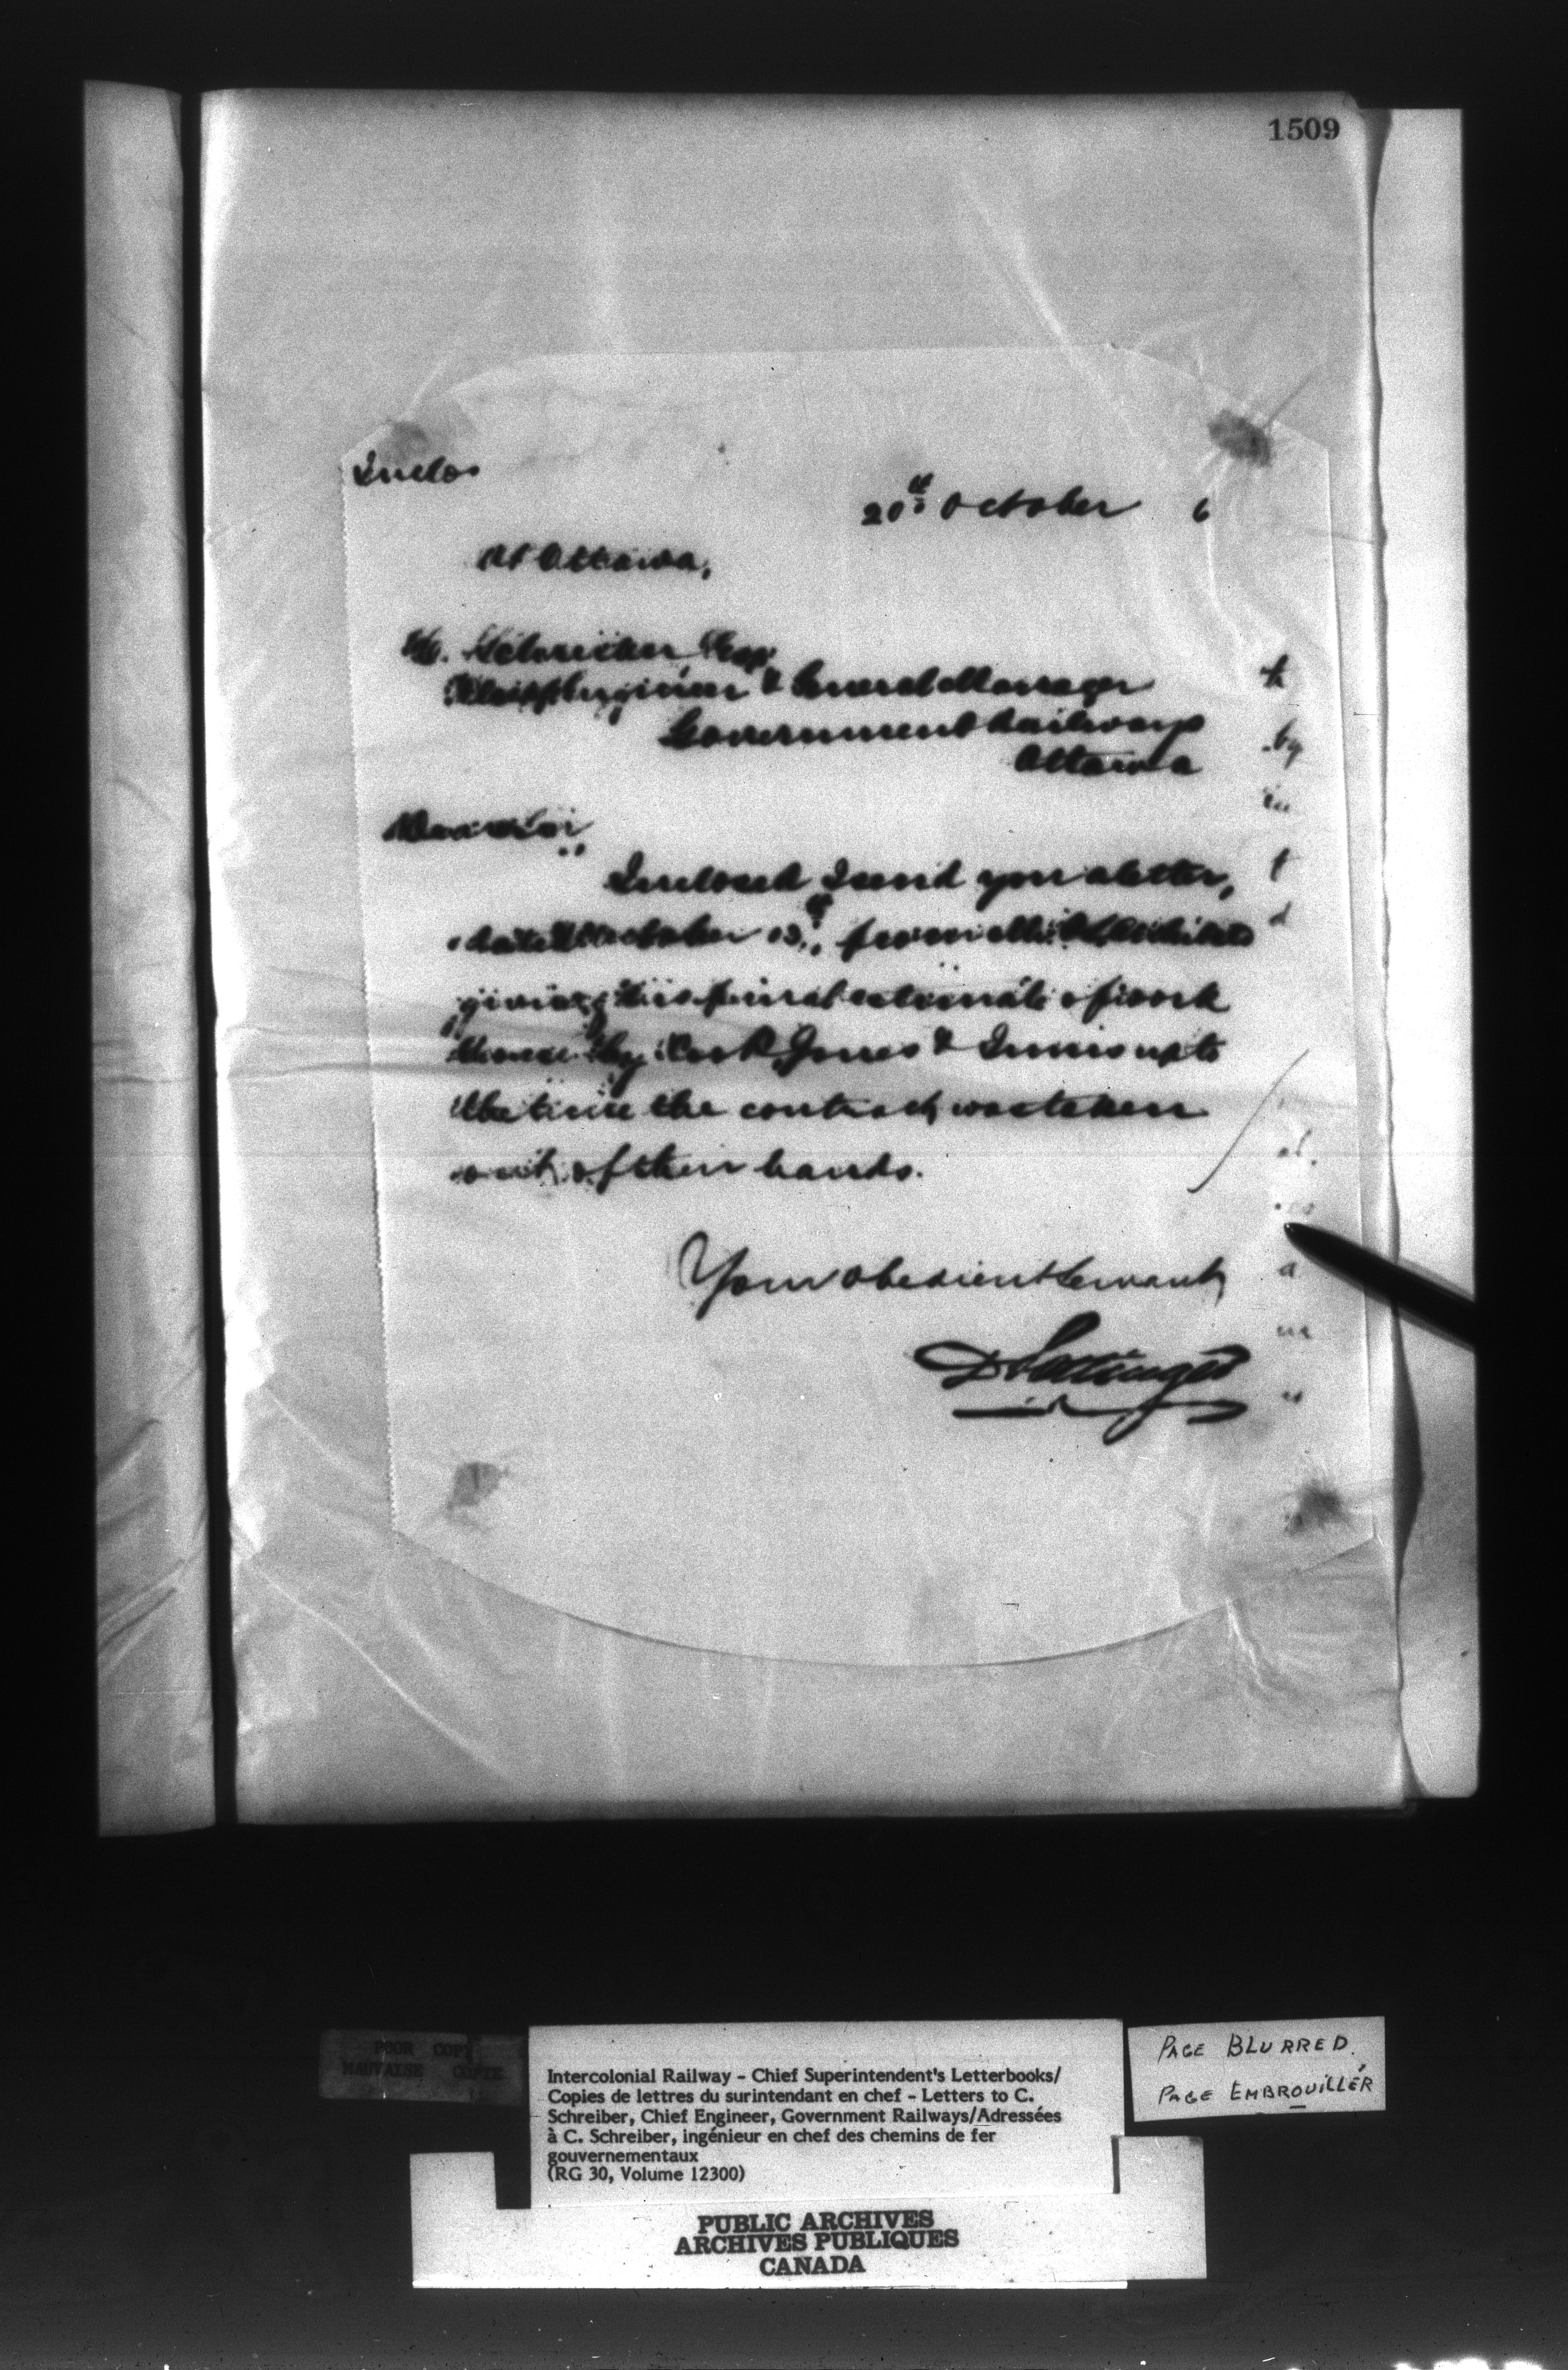 1509
Inclos
20th October 6
At Ottawa,
C. Schreiber, Esq.
Chief Engineer & General Manager
Government Railways
Ottawa
Dear Sir
Inclosed I send you a letter,
dated October 13th, from Mr.
giving his final estimate of work
done by Cook, Jones & Innis up to
the time the contract was taken
out of their hands.
Your obedient Servant,
D Pottinger
h
by
in
t
d
al.
es
a
m
POOR COPY
MAUVAISE COPIE
Intercolonial Railway - Chief Superintendent's Letterbooks/
Copies de lettres du surintendant en chef - Letters to C.
Schreiber, Chief Engineer, Government Railways/Adressées
à C. Schreiber, ingénieur en chef des chemins de fer
gouvernementaux
(RG 30, Volume 12300)
PAGE BLURRED.
PAGE EMBROUILLÉR
PUBLIC ARCHIVES
ARCHIVES PUBLIQUES
CANADA